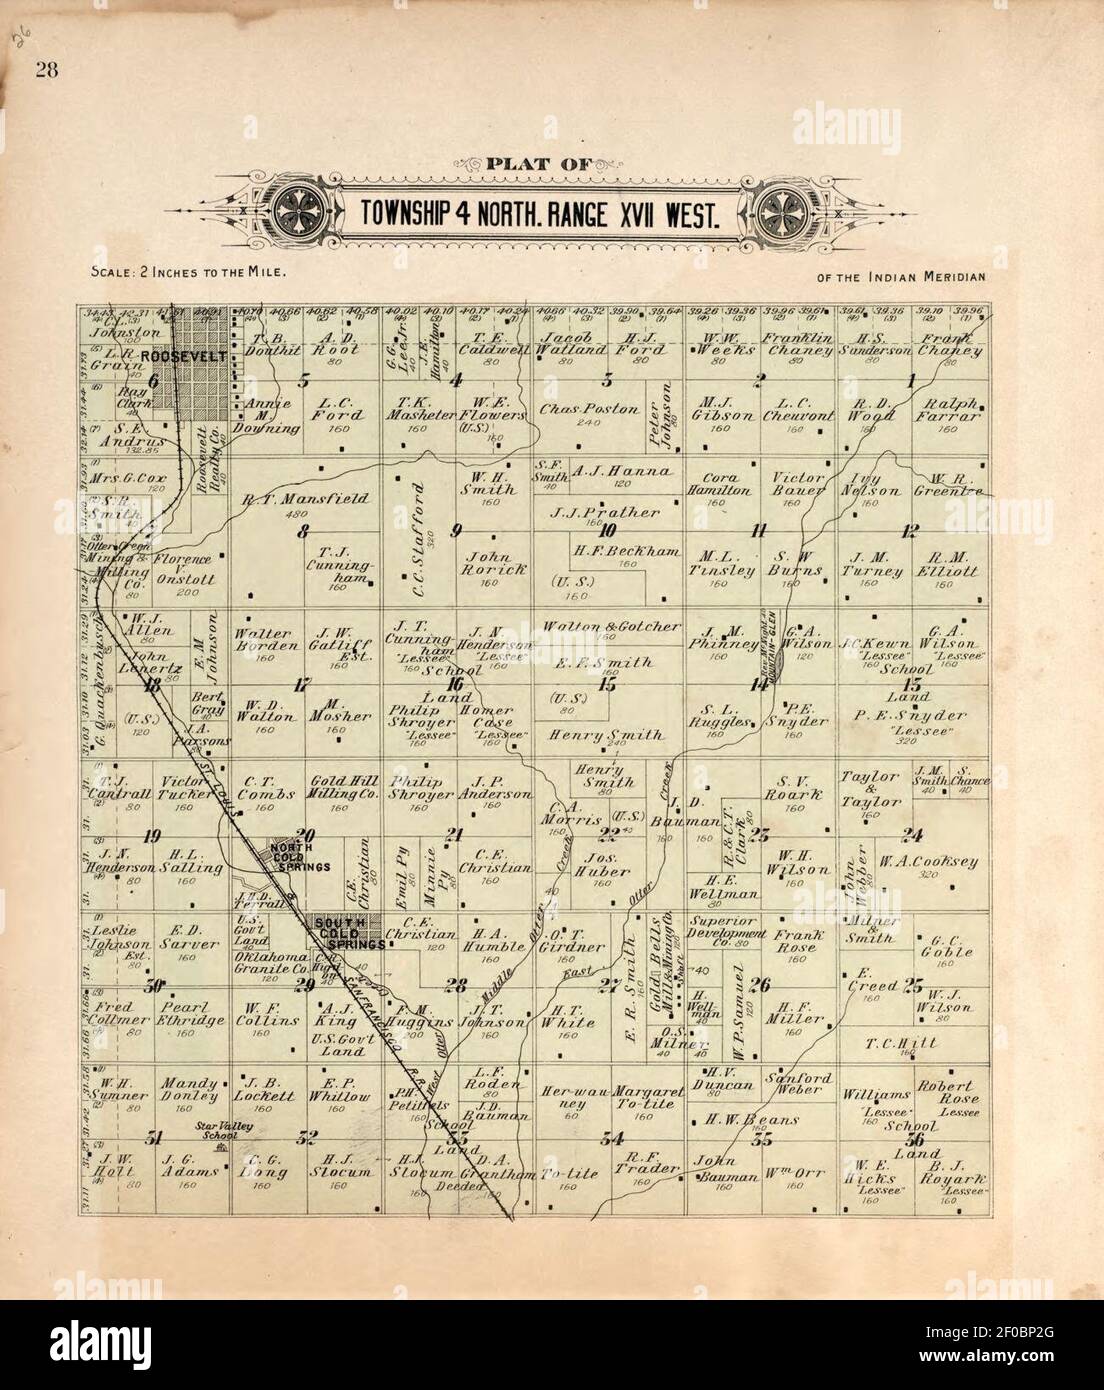 26
28
PLAT OF
TOWNSHIP 4 NORTH. RANGE XVII WEST.
SCALE: 2 INCHES TO THE MILE.
OF THE INDIAN MERIDIAN
C.L. Johnston
L.R. Grain 40
ROOSEVELT
6
Ray Clark 40
S.E. Andrus 132.85
Roosevelt Realty Co. 40
T.B. Douthit
A.D. Root 80
5
Annie M. Downing
L.C. Ford 160
G.G. Lee Jr. 80
J.E. Hamilton 40
T.E. Caldwell 80
4
T.K. Masheter 160
W.E. Flowers (U.S.) 160
Jacob Watland 80
H.J. Ford 80
3
Chas Poston 240
Peter Johnson 80
W.W. Weeks 80
Franklin Chaney 80
2
M.J. Gibson 160
L.C. Cheuvont 160
H.S. Sanderson 80
Frank Chaney 80
1
R.D. Wood 160
Ralph Farrar 160
Mrs. G. Cox 120
S.R. Smith 40
Otter Creek Mining & Milling Co. 80
Florence V. Onstott 200
R.T. Mansfield 480
8
T.J. Cunningham 160
C.C. Stafford 320
W.H. Smith 160
9
John Rorick 160
S.F. Smith 40
A.J. Hanna 120
J.J. Prather 160
10
H.F. Beckham 160
(U.S.) 160
Cora Hamilton 160
Victor Bauer 160
11
M.L. Tinsley 160
S.W Burns 160
Ivy Nelson 160
W.R. Greentre
12
J.M. Turney 160
R.M. Elliott 160
W.J. Allen 80
John Lubertz 80
E.M Johnson
G. Quackenbusch
18
(U.S.) 120
Bert Gray 40
J.A. Parsons
Walter Borden 160
J.W. Gatliff Est. 160
17
W.D. Walton 160
M. Mosher 160
J.T. Cunningham "Lessee" 160
J.N. Henderson "Lessee" 160
School 16 Land
Philip Shroyer "Lessee" 160
Homer Case "Lessee" 160
Walton & Gotcher 160
E.E. Smith 160
15
(U.S.) 80
Henry Smith 240
J.M. Phinney 160
MOUNTAIN GLEN
G.A. Wilson 120
14
S.L. Ruggles 160
P.E. Snyder 160
J.C. Kewn "Lessee" 160
G.A. Wilson "Lessee" 160
School 13 Land
P.E. Snyder "Lessee" 320
T.J. Cantrall 80
Victor Tucker 160
19
J.N. Henderson 80
H.L. Salling 160
ST. LOUIS
C.T. Combs 160
Gold Hill Milling Co. 160
20
NORTH COLD SPRINGS
C.E. Christian 80
J.H.D. Terrall
Philip Shroyer 160
J.P. Anderson 160
21
Emil Py 80
Minnie Py 80
C.E. Christian 160
Henry Smith 80
C.A. Morris 160
(U.S.) 40
22
Jos. Huber 160
Creek
Otter
Creek
J.D. Bauman 160
R. & C.T. Clark 80
S.V. Roark 160
23
H.E. Wellman 80
W.H. Wilson 160
Taylor & Taylor 160
J.M. Smith 40
S. Chance 40
24
John Webber 80
W.A. Cooksey 320
Leslie Johnson Est. 80
E.D. Sarver 160
30
Fred Collmer 80
Pearl Ethridge 160
U.S. Gov't Land 40
SOUTH COLD SPRINGS
Oklahoma Granite Co. 120
29
W.F. Collins 160
A.J. King 160
U.S. Gov't Land
SAN FRANCISCO R.R.
C.E. Christian 120
H.A. Humble 160
28
F.M. Huggins 200
J.T. Johnson 160
Middle Otter
West Otter
O.T. Girdner 160
East
27
H.T. White 160
E.R. Smith 160
Gold Bells Mill & Mining Co. 160
Shaft
O.S. Milner 40
Superior Development Co. 80
Frank Rose 160
26
H. Wellman 40
W.P. Samuel 120
H.F. Miller 160
Milner & Smith
G.C. Goble 160
E. Creed 160
25
W.J. Wilson 80
T.C. Hitt 160
W.H. Sumner 80
Mandy Donley 160
31
J.W. Holt 80
J.G. Adams 160
Star Valley School
J.B. Lockett 160
E.P. Whillow 160
32
C.G. Long 160
H.J. Slocum 160
P.H. Petitfils
L.F. Roden 80
J.D. Bauman 80
School 33 Land
H.J. Slocum 160
D.A. Grantham Deeded 160
Her-wau-ney 60
Margaret To-tite 160
34
To-tite 160
R.F. Trader 160
H.V. Duncan 80
Sanford Weber 80
H.W. Beans 160
35
John Bauman 160
Wm Orr 160
Williams "Lessee" 160
Robert Rose Lessee 160
School 36 Land
W.E. Hicks "Lessee" 160
B.J. Royark "Lessee" 160
alamy
alamy
Image ID: 2F0BP2G
www.alamy.com